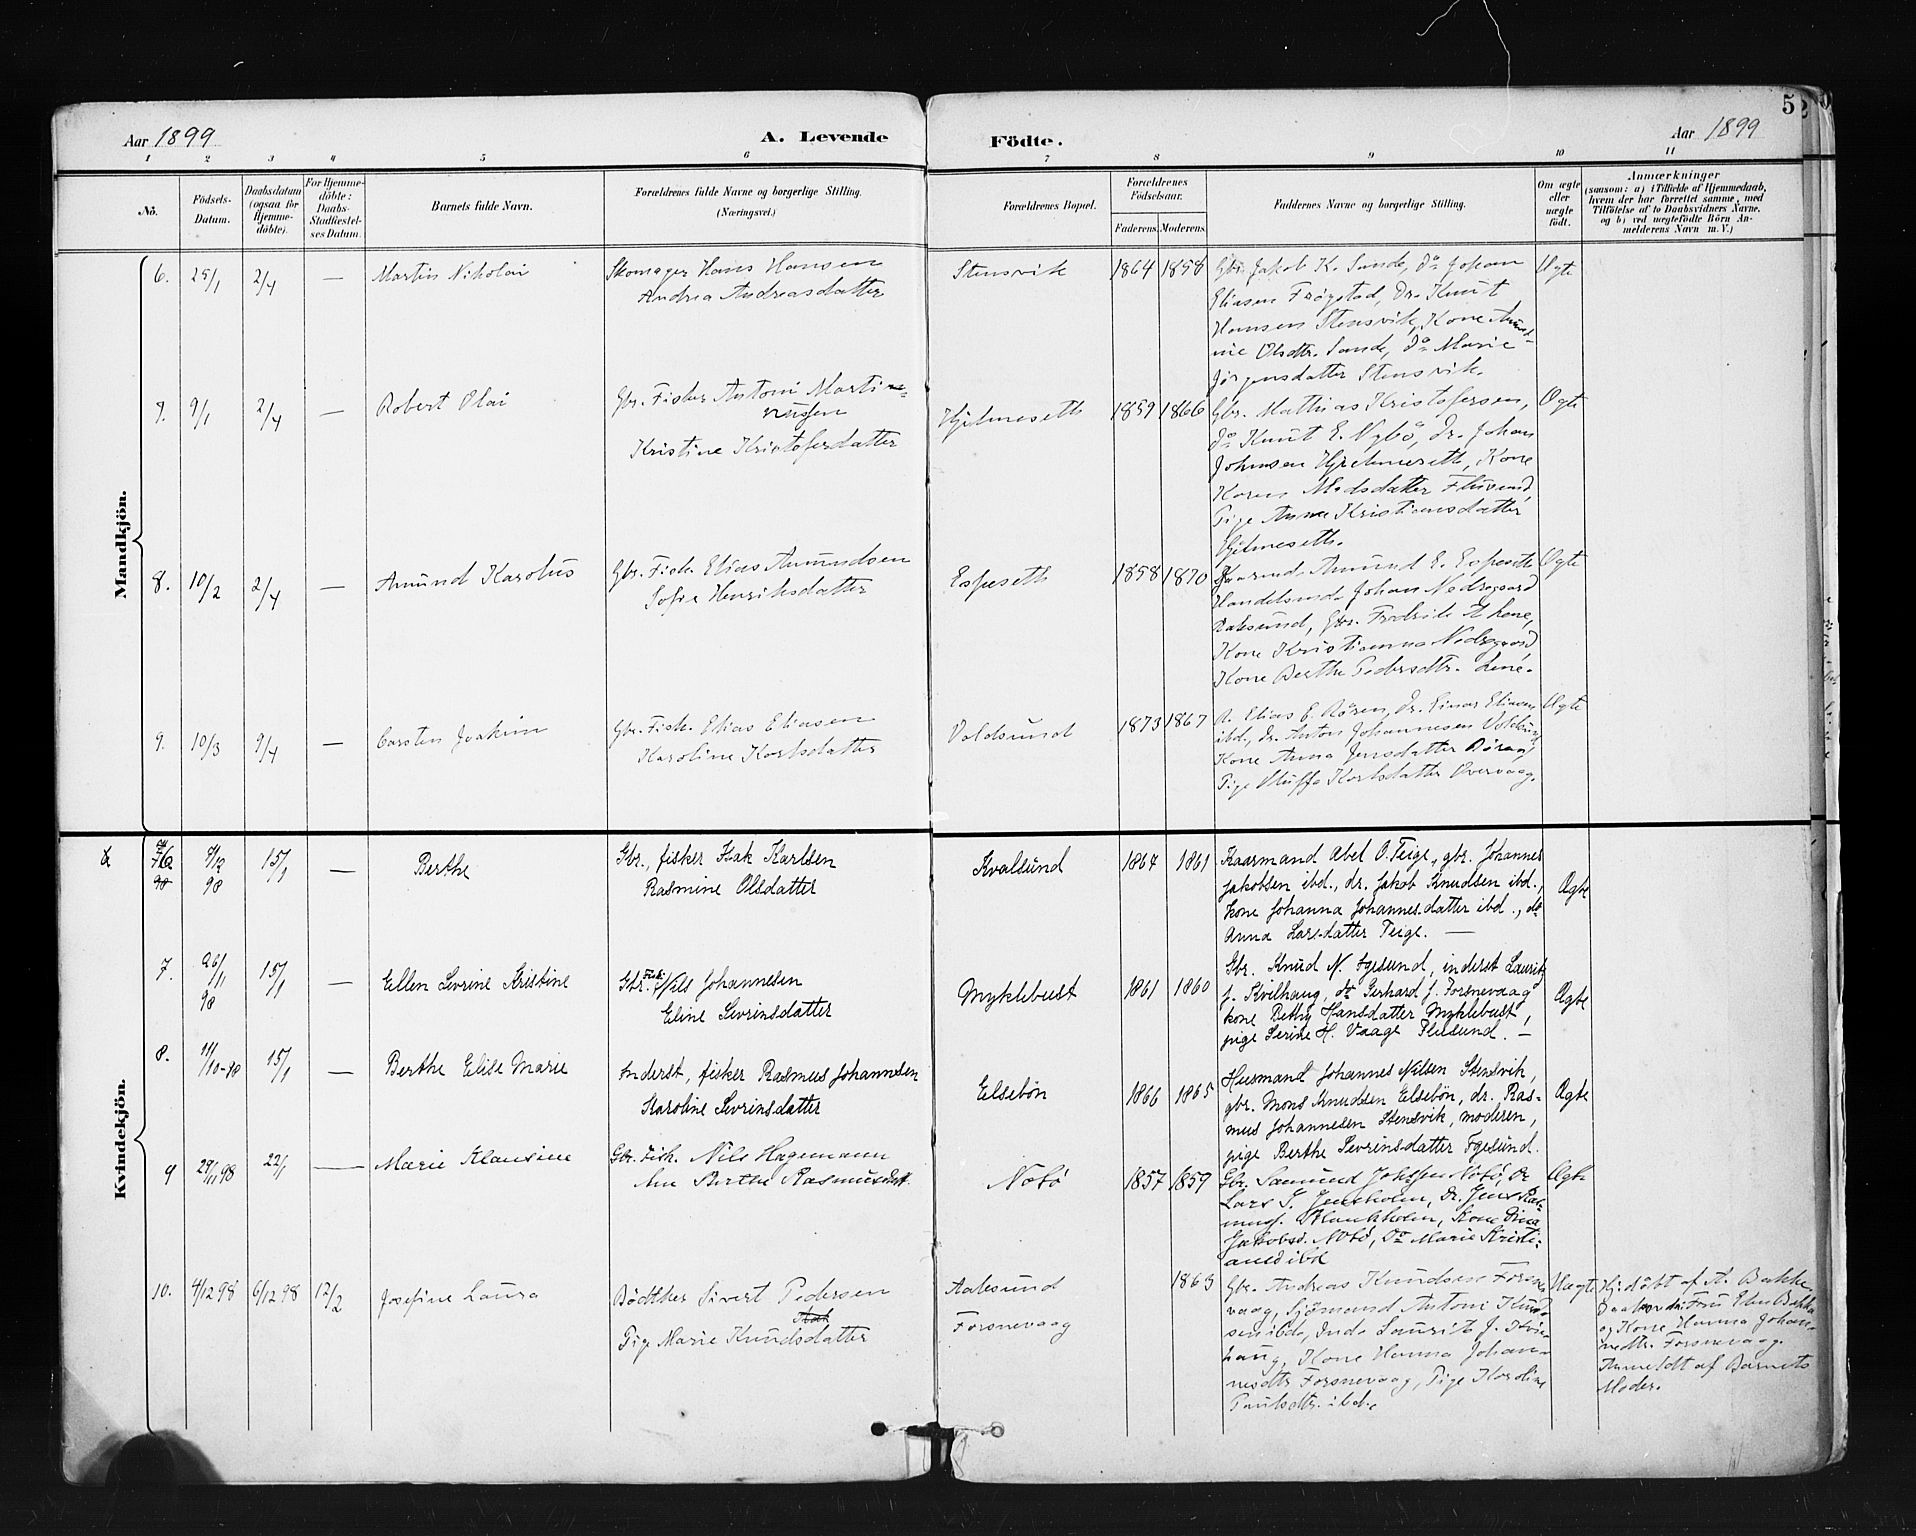 Aar 1899
A. Levende
Födte.
Aar 1899
52
1 2 3 4 5 6 7 8 9 10 11
Nô.
Födsels-
Datum.
Daabsdatum
(ogsaa for
Hjemme-
döbte).
For Hjemme-
döbte:
Daabs-
Stadfæstel-
ses Datum.
Barnets fulde Navn.
Forældrenes fulde Navne og borgerlige Stilling.
(Næringsvei.)
Forældrenes Bopæl.
Forældrenes
Födselsaar.
Faderens.
Moderens.
Faddernes Navne og borgerlige Stilling.
Om ægte
eller
uægte
født.
Anmærkninger
(saasom: a) i Tilfælde af Hjemmedaab,
hvem der har forrettet samme, med
Tilföielse af to Daabsvidners Navne,
og b) ved uægtefödte Börn An-
melderens Navn m. V.)
Mandkjön.
6. 25/1 2/4 — Martin Nikolai
Skomager Hans Hansen
Andrea Andreasdatter
Stensvik 1864 1858
Gbr. Jakob K. Sande, do Johan
Eliasen Frøystad, Dr. Knut
Hansen Stensvik, Kone
Olsdtr. Sande, do Marie
Jørgensdatter Stensvik.
Ægte
7. 9/1 2/4 — Robert Olai
Gbr. Fisker Antoni Martin-
ussen
Kristine Kristofersdatter
Hjelmeseth 1859 1866
Gbr. Mathias Kristofersen,
do Knut E. Nybö, Dr. Johan
Johnsen Hjelmeseth, Kone
Karen Madsdatter Flusund
Pige Anne Kristiansdatter
Hjelmeseth.
Ægte
8. 10/2 2/4 — Amund Karolus
Gbr. Fisk. Elias Amundsen
Sofie Henriksdatter
Espeseth 1858 1870
Kaarmd. Amund E. Espeseth
Handelsmd. Johan Nedregaard
Gbr. Fredrik
Kone Kristianna Nedregaard
Kone Berthe Pedersdtr.
Ægte
9. 10/3 9/4 — Carsten Joakim
Gbr. Fisk. Elias Eliasen
Karoline Karlsdatter
Voldsund 1873 1867
Elias E. Røren, dr. Einar Eliasen
ibd., dr. Anton Johannesen Voldsund
Kone Anna Jensdatter
Pige Karlsdatter Overvaag.
Ægte
Kvindekjön.
6 9/12 98 15/1 — Berthe
Gbr., fisker Isak Karlsen
Rasmine Olsdatter
Kvalsund 1867 1861
Kaarmand Abel O. Teige, gbr. Johannes
Jakobsen ibd., dr. Jakob Knudsen ibd.,
kone Johanna Johannesdatter ibd., do
Anna Larsdatter Teige. —
Ægte
7. 26/11 98 15/1 — Ellen Sevrine Kristine
Gbr. Fisk. Nils Johannesen
Eline Sevrinsdatter
Myklebust 1861 1860
Gbr. Knud N. Igesund, inderst Laurits
J. Kvilhaug, do Gerhard J. Forsnevaag
kone Bethy Hansdatter Myklebust,
pige Serine H. Vaage Flusund. —
Ægte
8. 11/10-98 15/1 — Berthe Elise Marie
Inderst, fisker Rasmus Johannesen
Karoline Sevrinsdatter
Elsebøn 1866 1865
Husmand Johannes Nilsen Stensvik,
gbr. Mons Knudsen Elsebøn, dr. Ras-
mus Johannesen Stensvik, moderen,
pige Berthe Sevrinsdatter Igesund.
Ægte
9 29/11 98 22/1 — Marie Klausine
Gbr. Fisk. Nils Hagemann
Ane Berthe Rasmusdatt.
Notø 1857 1859
Gbr. Samund Notø, Dr
Lars J. Jensholm, Dr. Jens Ras-
muss. Flankholm, Kone Dina
Jakobsd. Notø, Do Marie Kristi-
ansd ibd
Ægte
10. 4/12 98 6/12 98 12/2 Josefine Laura
Bødtker Sivert Pedersen
Pige Marie Knudsdatter
Aalesund
Forsnevaag
1863
Gbr. Andreas Knudsen Forsne-
vaag, Sjømand Antoni Knud-
sen ibd., Ind. Laurits J. Kvil-
haug, Kone Hanna Johan-
nesdtr Forsnevaag, Pige Karoline
Paulsdtr. ibd.
Uægte
Hj. døbt af A. Bakke,
Fru Elen Bakke
og Kone Hanna Johan-
nesdtr. Forsnevaag.
Anmeldt af Barnets
Moder.